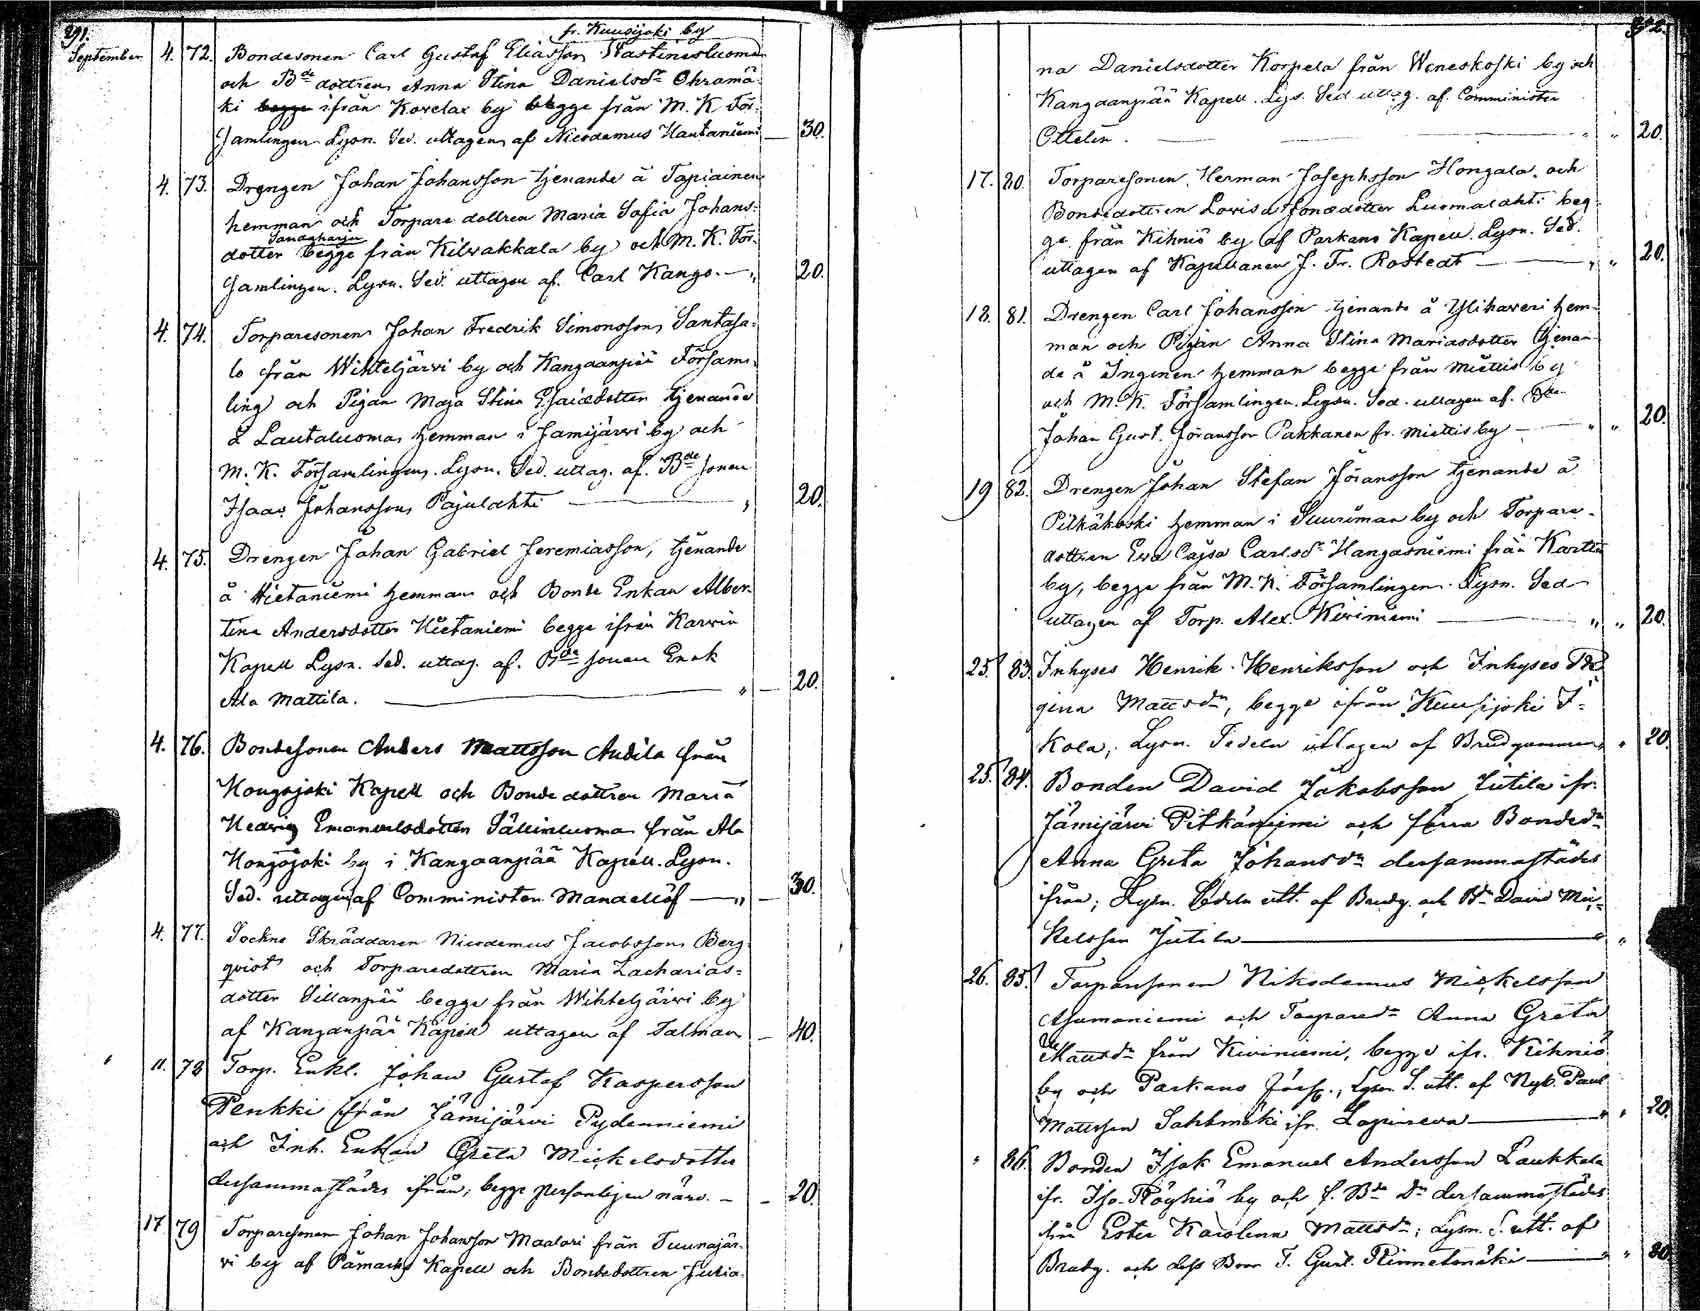 291.
fr. Kuusijoki by
September. 4. 72. Bondesonen Carl Gustaf Eliasson Wastinesluoma
och Bde dottren Anna Stina Danielsdr Ohramä-
ki begge ifrån Kovelax by begge från M. K. För-
samlingen Lysn. Sed. uttagen af Nicodemus Hautaniemi — 30.
4. 73. Drengen Johan Johansson tjenande å Tapiainen
hemman och Torpare dottren Maria Sofia Johans-
dotter begge från Kilwakkala by och M. K. För-
samlingen. Lysn. Sed. uttagen af Carl Kango. — " 20.
4. 74. Torparesonen Johan Fredrik Simonsson Santasa-
lo från Wihteljärwi by och Kangaanpää Försam-
ling och Pigan Maja Stina Esaiædotter tjenande
å Lautaluoma hemman i Jamijärwi by och
M. K. Församlingen. Lysn. Sed. uttag. af Bde sonen
Isaac Johansson Pajulahti — " 20.
4. 75. Drengen Johan Gabriel Jeremiasson, tjenande
å Hietaniemi hemman och Bonde Enkan Alber-
tina Andersdotter Hietaniemi begge ifrån Karwia
Kapell Lysn. Sed. uttag. af Bde sonen Enok
Ala Mattila. — " — 20.
4. 76. Bondesonen Anders Mattsson Anttila från
Hongojoki Kapell och Bonde dottren Maria
Hedvig Emanuelsdotter Sällinluoma från Ala
Hongojoki by i Kangaanpää Kapell. Lysn.
Sed. uttagen af Comministern Mandellöf — " — 30.
4. 77. Sockne Skräddaren Nicodemus Jacobsson Berg-
qvist och Torparedottren Maria Zacharias-
dotter Sillanpää begge från Wihteljärwi by
af Kanganpää Kapell uttagen af Talman — 40.
11. 78 Torp. Enkl. Johan Gustaf Kaspersson
Penkki från Jämijärvi Pydenniemi
och Inh. Enkan Greta Mickelsdotter
dersammastädes ifrån; begge personligen närv. — 20.
17 79 Torparesonen Johan Johansson Maalari från Tuunajär-
vi by af Påmark Kapell och Bondedottren Julia-
392.
na Danielsdotter Korpela från Weneskoski by och
Kangaanpää Kapell. Lys. Sed uttag. af Comminister
Ottelin. — " " 20.
17. 80. Torparesonen Herman Josephsson Hongala och
Bondedottren Lovisa Jonædotter Luomalahti beg-
ge från Kihniö by af Parkano Kapell. Lysn. Sed.
uttagen af Kapellanen J. Fr. Rostedt — " " 20.
18. 81. Drengen Carl Johansson tjenande å Ylihaveri hem-
man och Pigan Anna Stina Mariasdotter tjenan-
de å Inginen hemman begge från Miettis by
och M. K. Församlingen. Lysn. Sed. uttagen af
Johan Gust. Göransson Pakkanen fr. Miettis by — " " 20.
19 82. Drengen Johan Stefan Jöransson tjenande å
Pitkäkoski hemman i Suuriman by och Torpare-
dottren Eva Cajsa Carlsdr Hangasniemi från Kartti
by, begge från M. K. Församlingen. Lysn. Sed
uttagen af Torp. Alex. Kiviniemi — " " 20.
25. 83. Inhyses Henrik Henriksson och Inhyses Re-
gina Mattsdr, begge ifrån Kuusijoki I-
Kola; Lysn. Sedeln uttagen af Brudgummen " 20.
25. 84. Bonden David Jakobsson Jutila ifr.
Jämijärvi Pitkäniemi och förra Bondedr
Anna Greta Johansdr dersammastädes
ifrån; Lysn. Sedeln utt. af Brudg. och Bn David Mic-
kelsson Jutila — " "
26. 85. Torparesonen Nikodemus Mickelsson
Ajumaniemi och Torparedr Anna Greta
Mattsdr från Kiviniemi, begge ifr. Kihniö
by och Parkano förs., Lysn. S. utt. af Nyb. Paul
Mattsson Sahlmäki ifr. Lapinneva — " " 20.
" 86. Bonden Isak Emanuel Andersson Laukkala
ifr. Iso-Röyhiö by och f. Bde Dr dersammastädes
ifrån Ester Karolina Mattsdr; Lysn. S. utt. af
Brudg. och dess Bror T. Gust. Rinnetmäki — " " 80